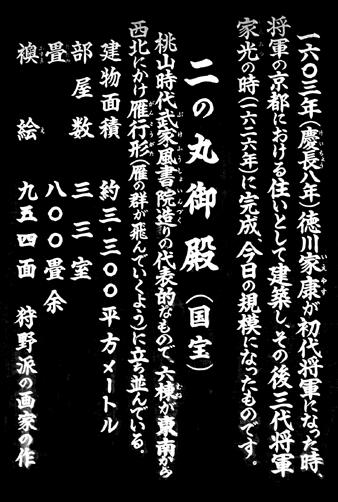 一六〇三年(慶長八年)徳川家康が初代将軍になった時、
将軍の京都における住いとして建築し、その後三代将軍
家光の時(一六二六年)に完成、今日の規模になったものです。
二の丸御殿(国宝)
桃山時代武家風書院造りの代表的なもので、六棟が東南から
西北にかけ雁行形(雁の群が飛んでいくよう)に立ち並んでいる。
建物面積 約三・三〇〇平方メートル
部屋数 三三室
畳 八〇〇畳余
襖絵 九五四面 狩野派の画家の作